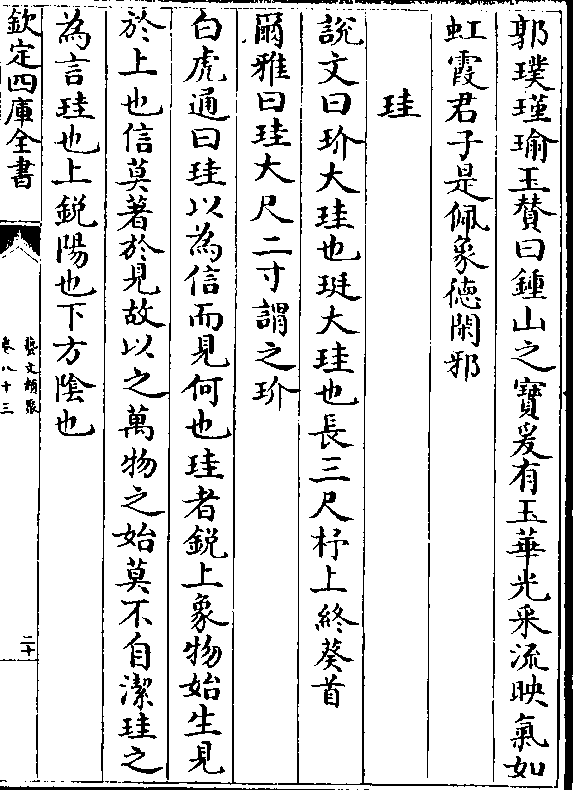 郭璞瑾瑜玉賛曰鍾山之寶爰有玉華光采流映氣如
虹霞君子是佩象徳閑邪
珪
説文曰玠大珪也珽大珪也長三尺杼上終葵首
爾雅曰珪大尺二寸謂之玠
白虎通曰珪以為信而見何也珪者鋭上象物始生見
於上也信莫著於見故以之萬物之始莫不自潔珪之
為言珪也上鋭陽也下方陰也
欽定四庫全書
藝文類聚
卷八十三
二十